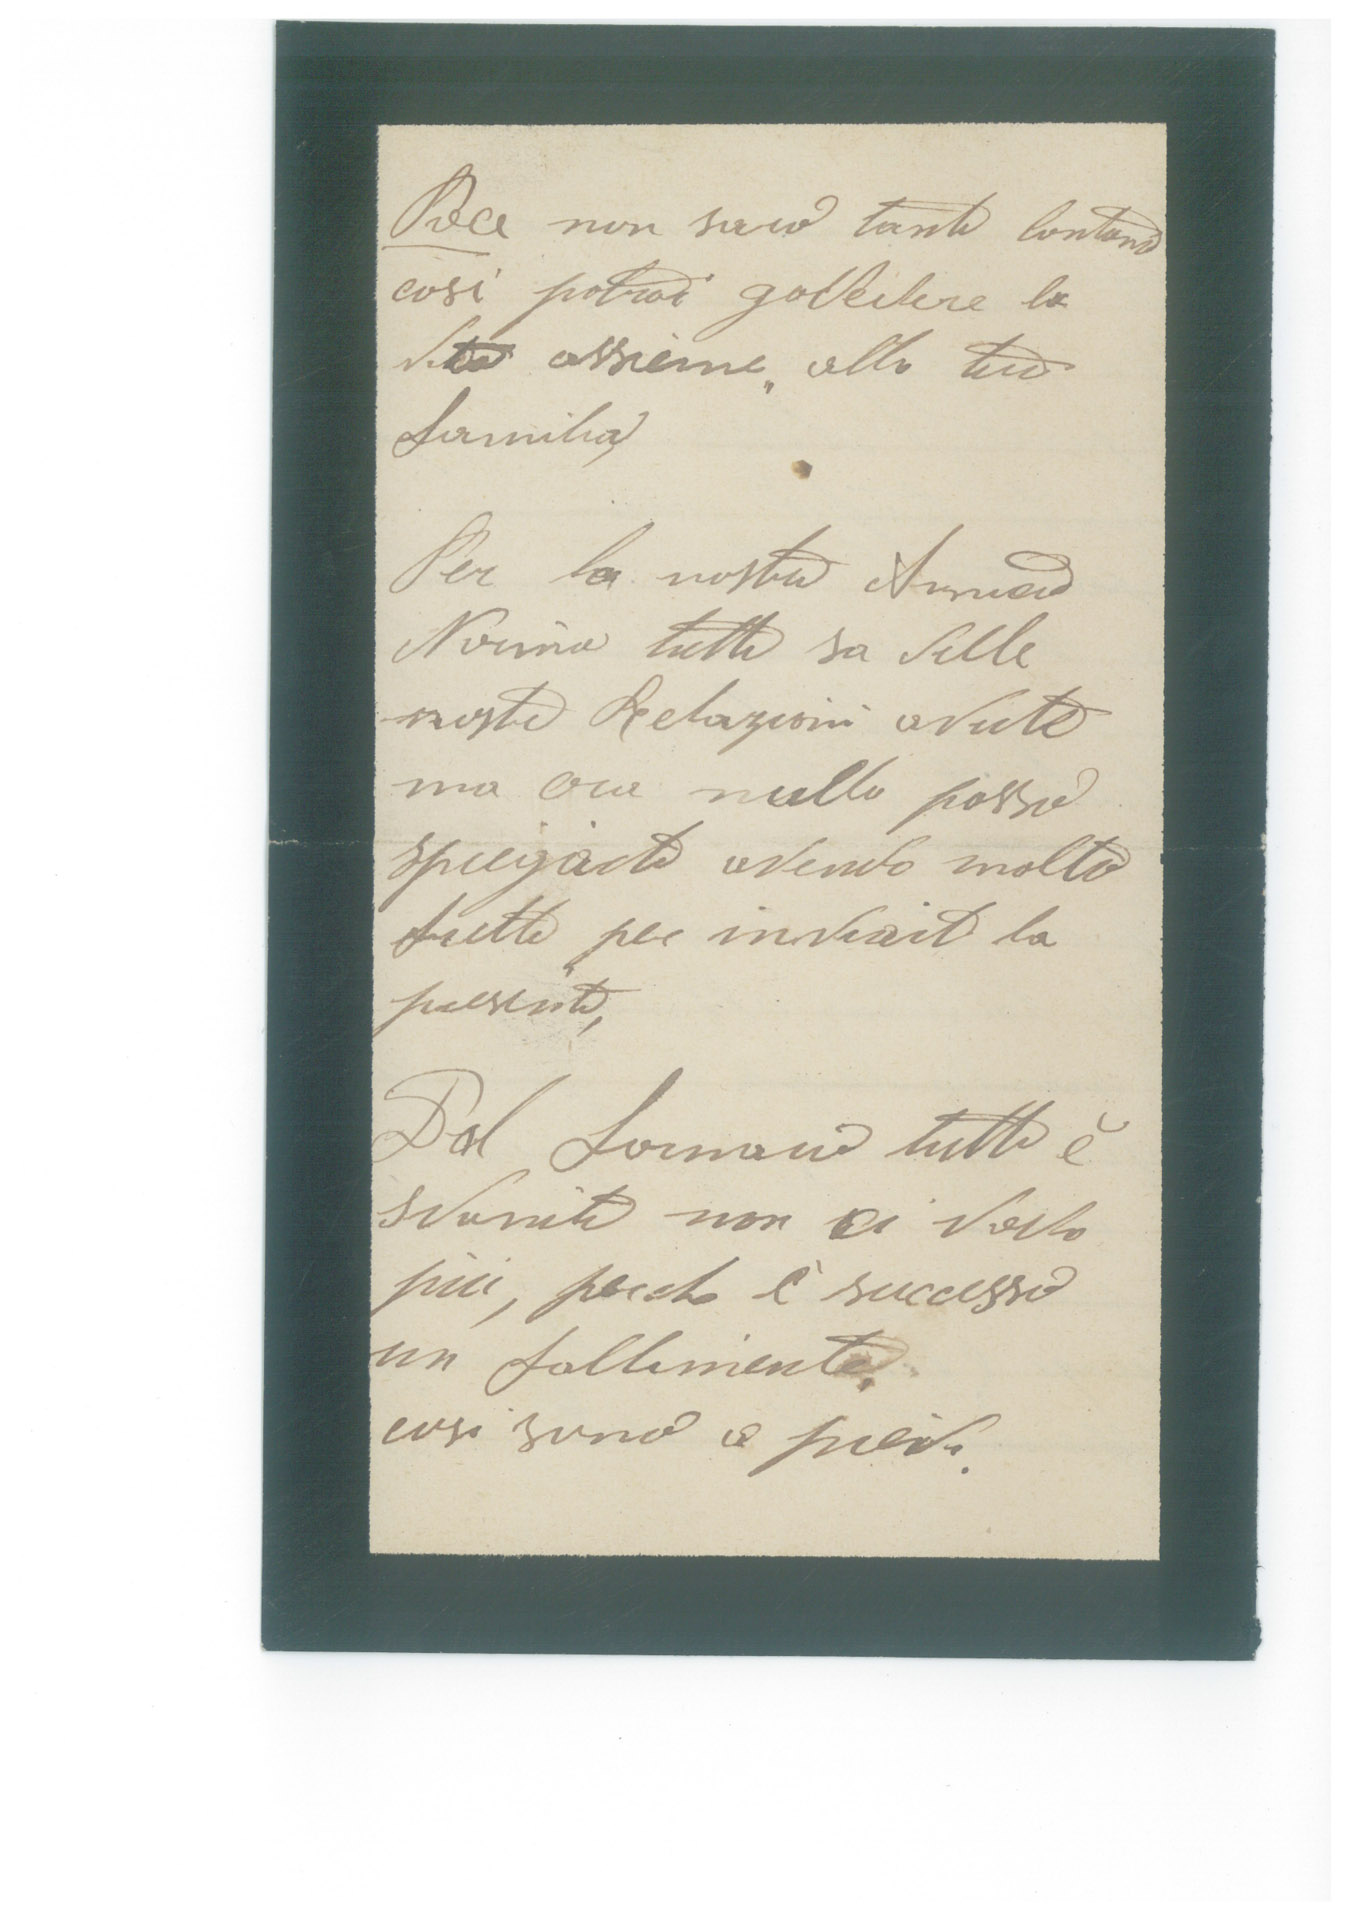 Pace non sarà tanto lontano
così potrai godere la
vita assieme alla tua
familia,
Per la nostra
Norina tutto sa delle
nostre Relazioni avute
ma ora nulla posso
spiegarti avendo molta
fretta per inviarti la
presente,
Dal Fornaio tutto è
svanito non ci vado
più, perche è successo
un fallimento,
cosi sono a piedi.